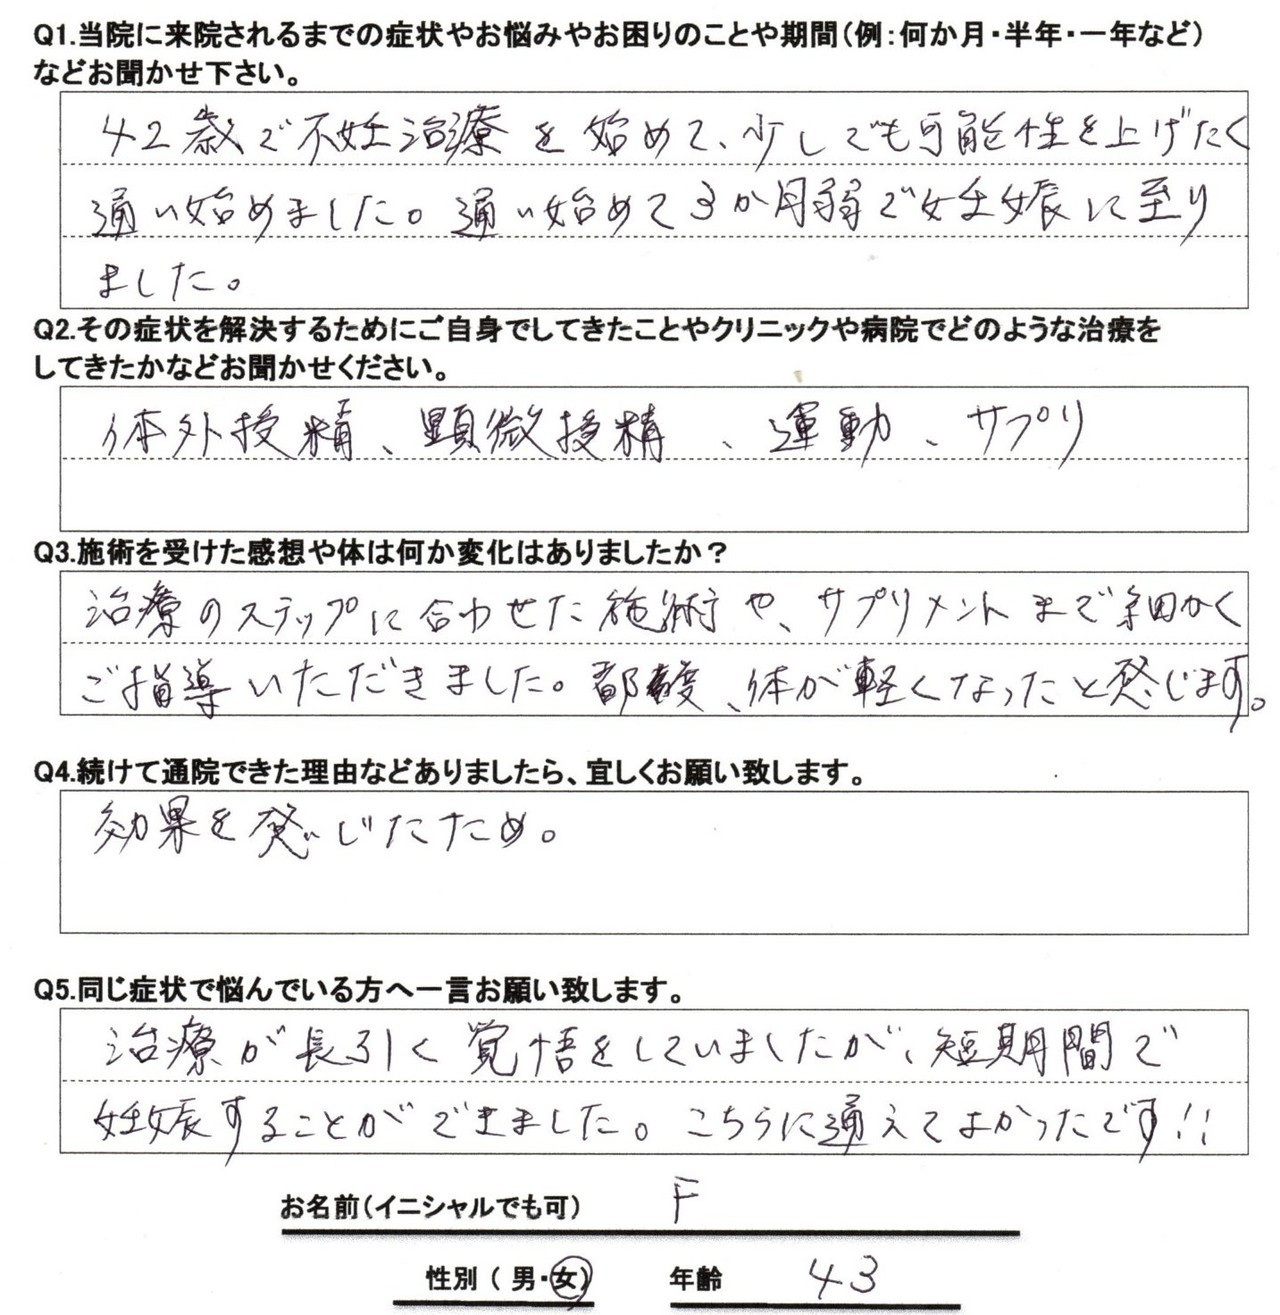 Q1.当院に来院されるまでの症状やお悩みやお困りのことや期間(例:何か月・半年・一年など)
などお聞かせ下さい。
42歳で不妊治療を始めて、少しでも可能性を上げたく
通い始めました。通い始めて3か月弱で妊娠に至り
ました。
Q2.その症状を解決するためにご自身でしてきたことやクリニックや病院でどのような治療を
してきたかなどお聞かせください。
体外授精、顕微授精、運動、サプリ
Q3.施術を受けた感想や体は何か変化はありましたか?
治療のステップに合わせた施術や、サプリメントまで細かく
ご指導いただきました。都度、体が軽くなったと感じます。
Q4.続けて通院できた理由などありましたら、宜しくお願い致します。
効果を感じたため。
Q5.同じ症状で悩んでいる方へ一言お願い致します。
治療が長引く覚悟をしていましたが、短期間で
妊娠することができました。こちらに通えてよかったです!!
お名前(イニシャルでも可) F
性別 ( 男・女) 年齢 43